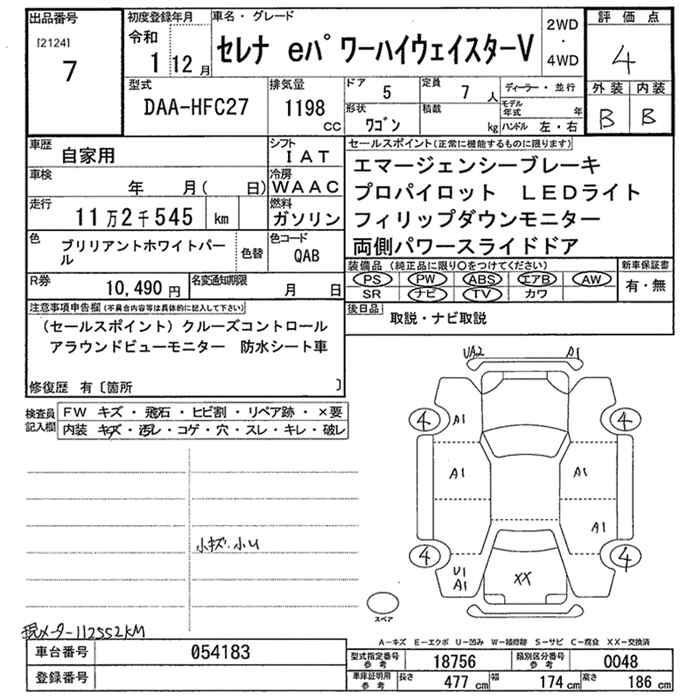 出品番号
[2124]
7
初度登録年月
令和
1 12月
車名・グレード
セレナ eパワーハイウェイスターV
2WD
・
4WD
評価点
4
外装 内装
B B
型式
DAA-HFC27
排気量
1198
cc
ドア 5
定員 7 人
ディーラー・並行
形状 ワゴン
積載 kg
モデル年式 年
ハンドル 左・右
車歴 自家用
シフト IAT
車検 年 月( 日)
冷房 WAAC
走行 11万2千545 km
燃料 ガソリン
色 ブリリアントホワイトパール
色替
色コード QAB
R券 10,490円
名変通知期限 月 日
セールスポイント(正常に機能するものに限ります)
エマージェンシーブレーキ
プロパイロット LEDライト
フィリップダウンモニター
両側パワースライドドア
装備品(純正品に限り○をつけてください)
PS PW ABS エアB AW
SR ナビ TV カワ
新車保証書
有・無
後日品 取説・ナビ取説
注意事項申告欄(不具合内容等は具体的に記入して下さい)
(セールスポイント)クルーズコントロール
アラウンドビューモニター 防水シート車
修復歴 有〔箇所 〕
検査員記入欄
FW キズ・飛石・ヒビ割・リペア跡・×要
内装 キズ・汚レ・コゲ・穴・スレ・キレ・破レ
小キズ 小U
UA2 A1
4 A1 4
A1 A1
A1
4 U1 A1 XX 4
スペア
現メーター112552KM
A-キズ E-エクボ U-凹み W-補修跡 S-サビ C-腐食 XX-交換済
車台番号 054183
登録番号
型式指定番号 参考 18756
類別区分番号 参考 0048
車庫証明用 参考 長さ 477cm 幅 174cm 高さ 186cm